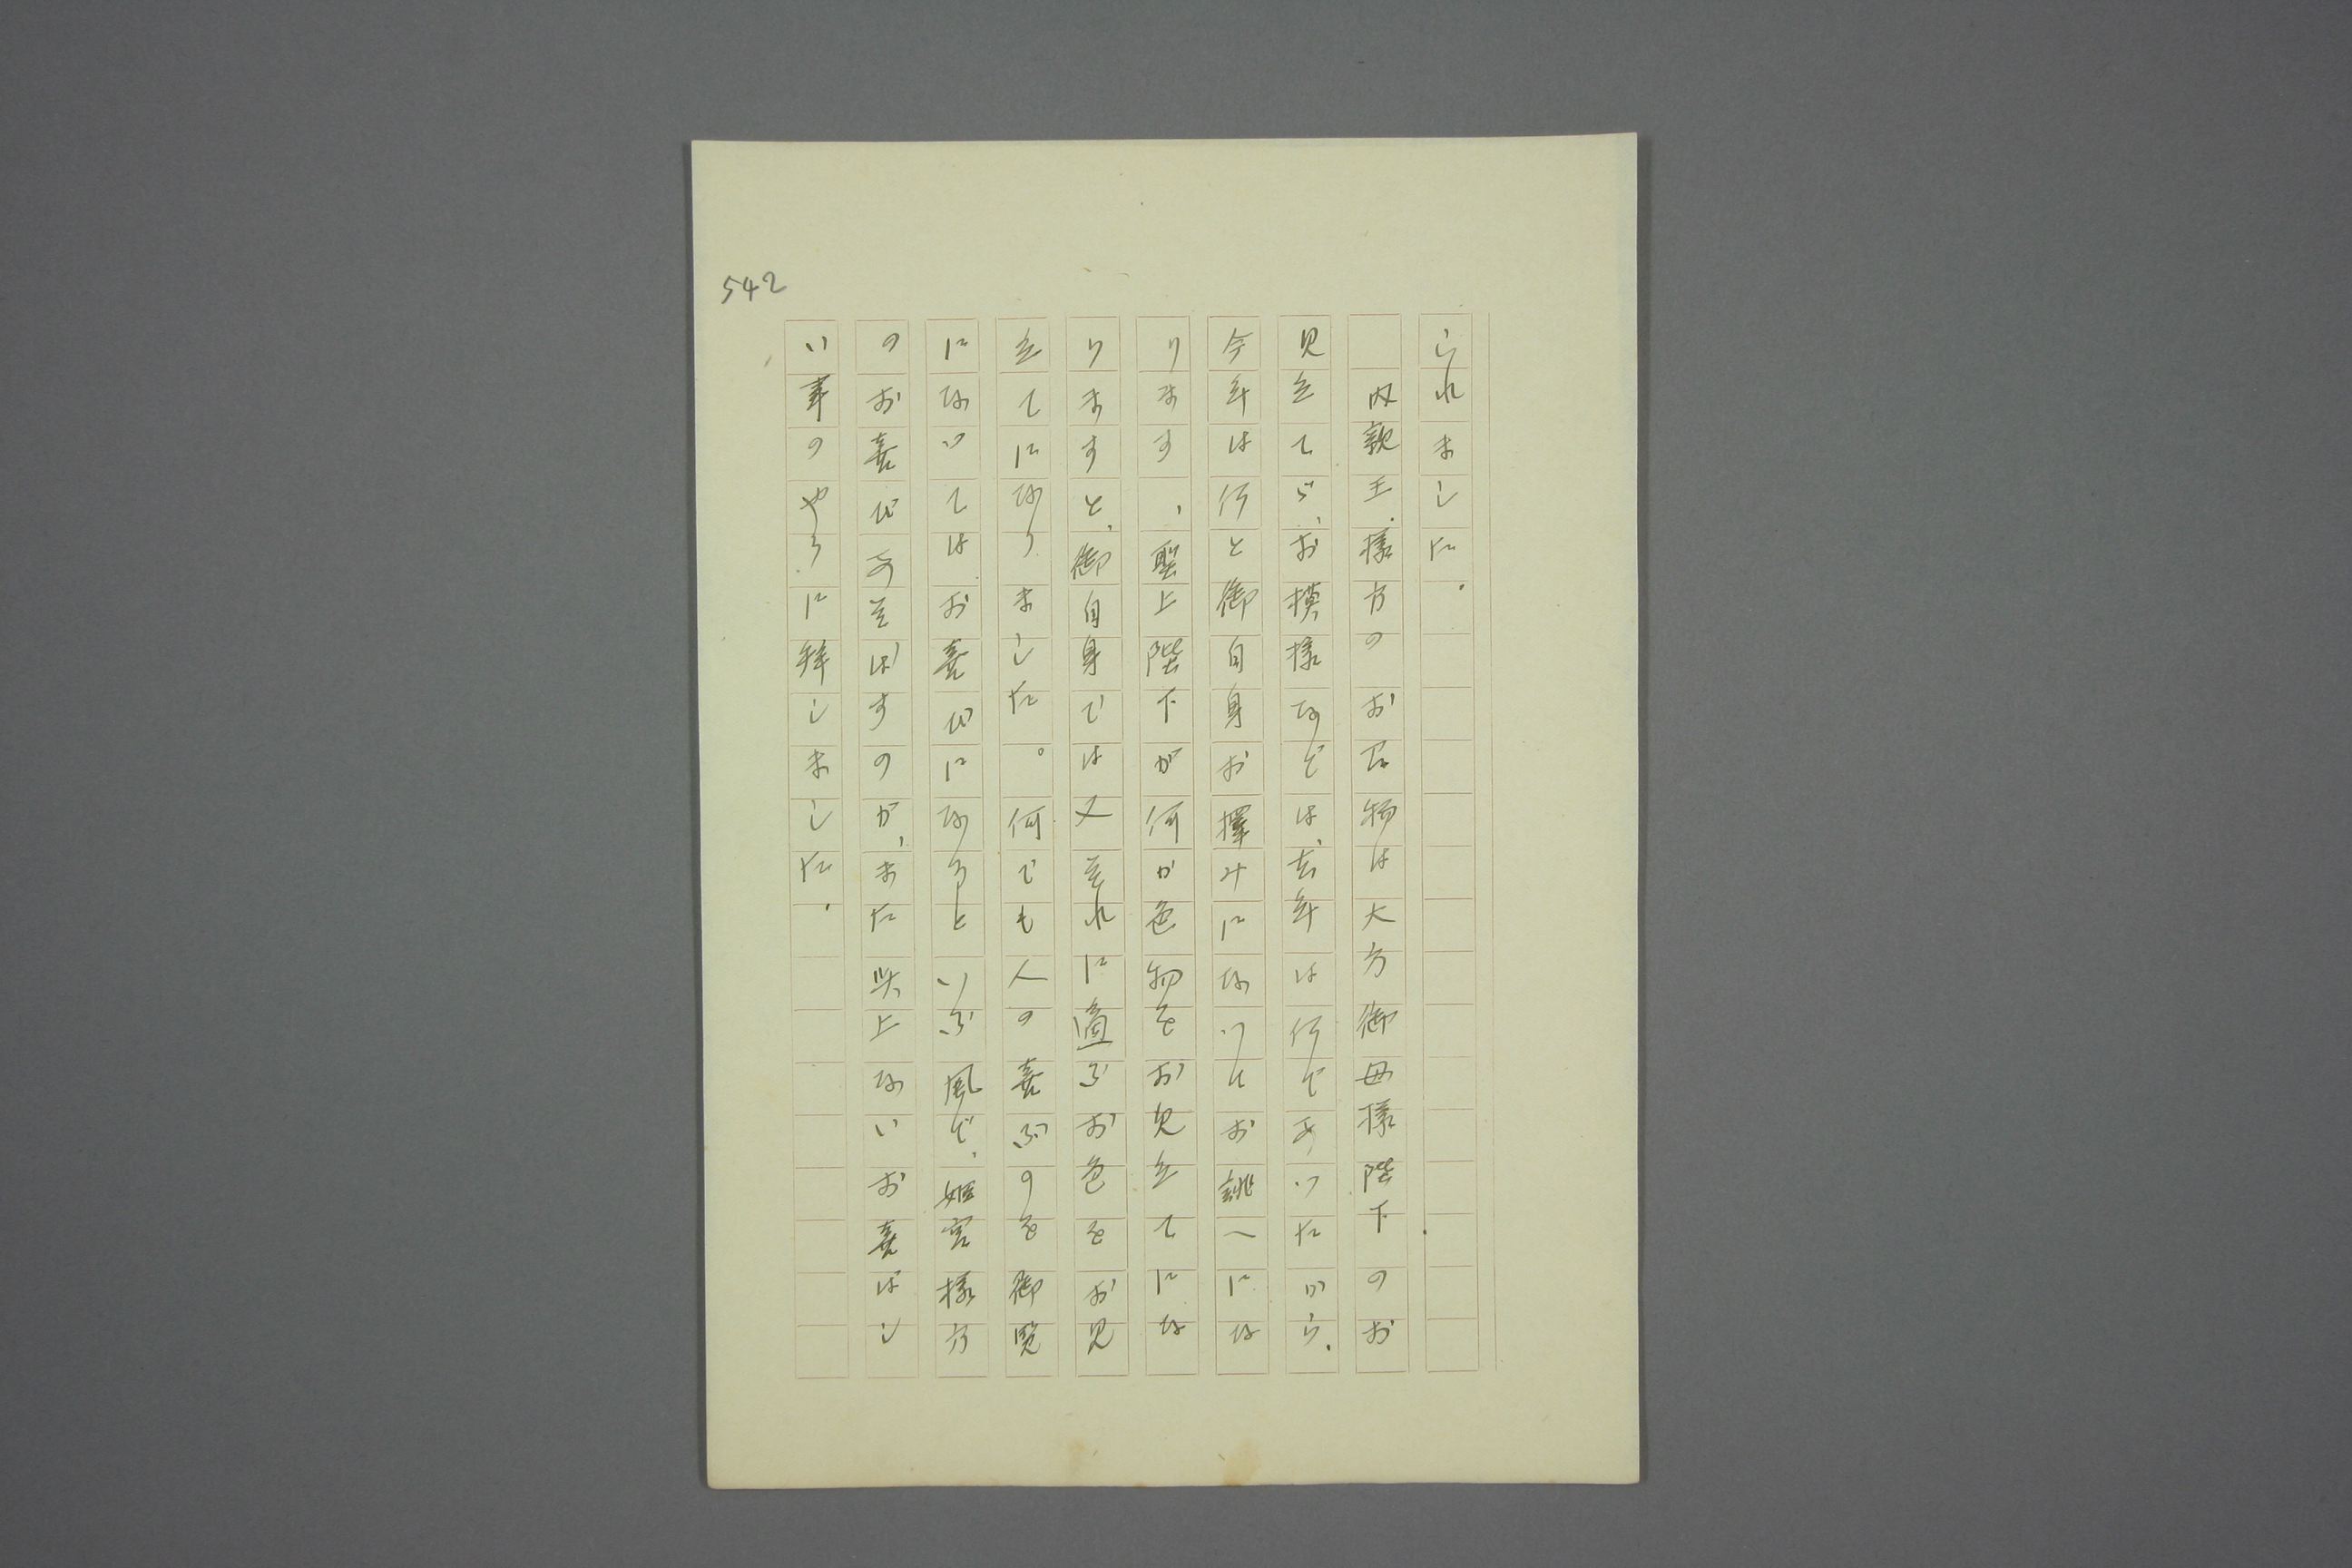 542
られました。
内親王様方のお召物は大方御母様陛下のお
見立てゞ、お模様などは、去年は何であつたから、
今年は何と御自身お擇みになつてお誂へにな
ります、聖上陛下が何か色物をお見立てにな
りますと、御自身では又それに適ふお色をお見
立てになりました。何でも人の喜ぶのを御覧
になつてはお喜びになるといふ風で、姫宮様方
のお喜びあそばすのが、また此上ないお喜ばし
い事のやうに拜しました。